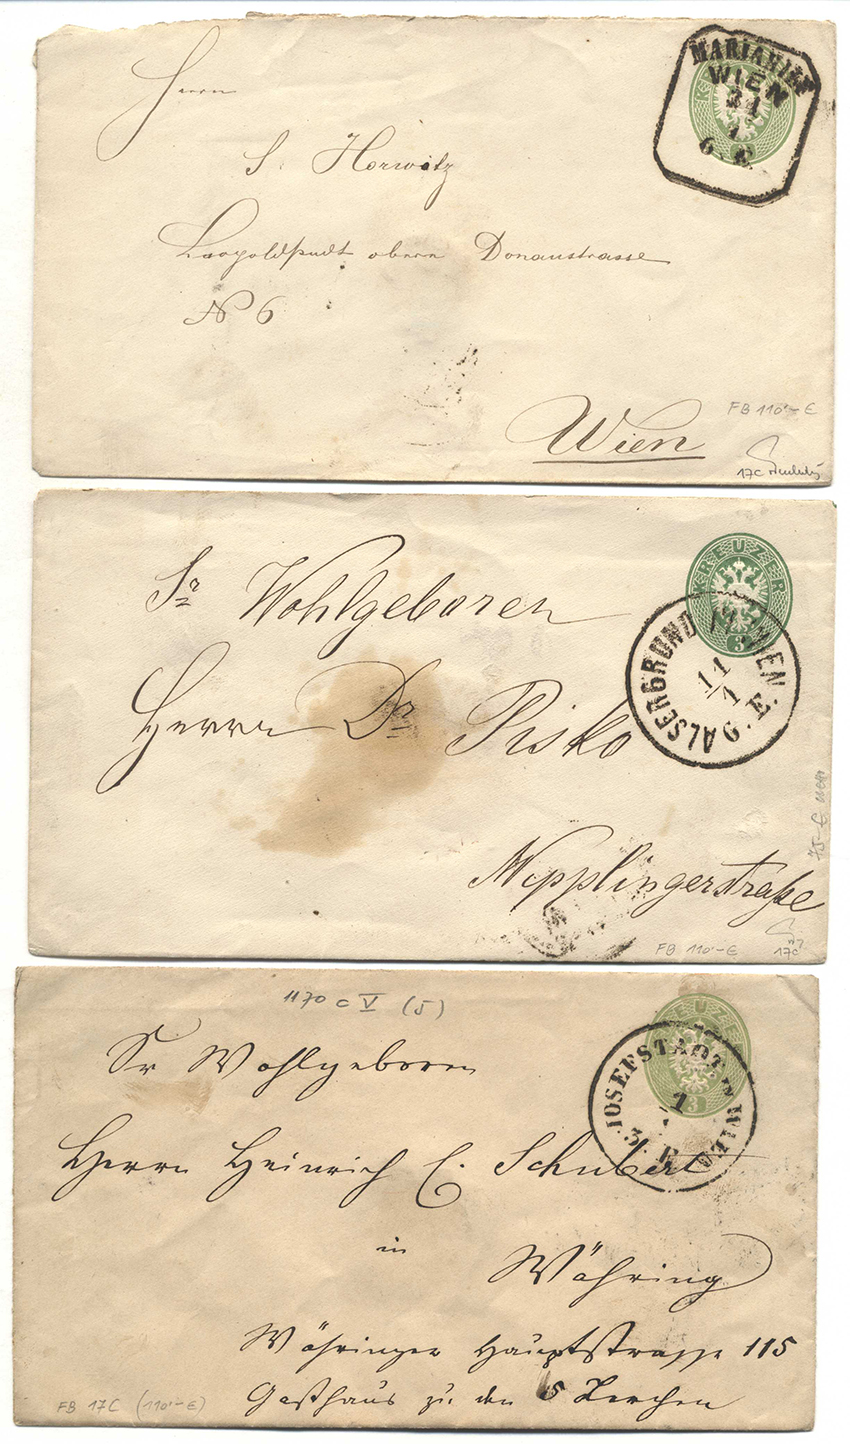 MARIAHILF
WIEN
24
1
6. E.
Herrn
S. Horwitz
Leopoldstadt obere Donaustrasse
No 6
Wien
FB 110'- €
17C
KREUZER
3
ALSERGRUND IN WIEN
11
/1
6. E.
Sr Wohlgeboren
Herrn Dr Pisko
Wipplingerstraße
75- €
FB 110'- €
17C
1170 c V (5)
KREUZER
3
JOSEFSTADT IN WIEN
1
1
3. E.
Sr Wohlgeboren
Herrn Heinrich C. Schubert
in
Währing
Währinger Hauptstrasse 115
Gasthaus zu den 5 Lerchen
FB 17C (110'- €)